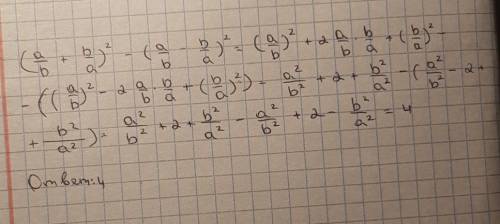 (a/b + b/a)² - (a/b - b/a)² = (a/b)² + 2 a/b · b/a + (b/a)² -
- ((a/b)² - 2 a/b · b/a + (b/a)²) = a²/b² + 2 + b²/a² - (a²/b² - 2 +
+ b²/a²) = a²/b² + 2 + b²/a² - a²/b² + 2 - b²/a² = 4
Ответ: 4